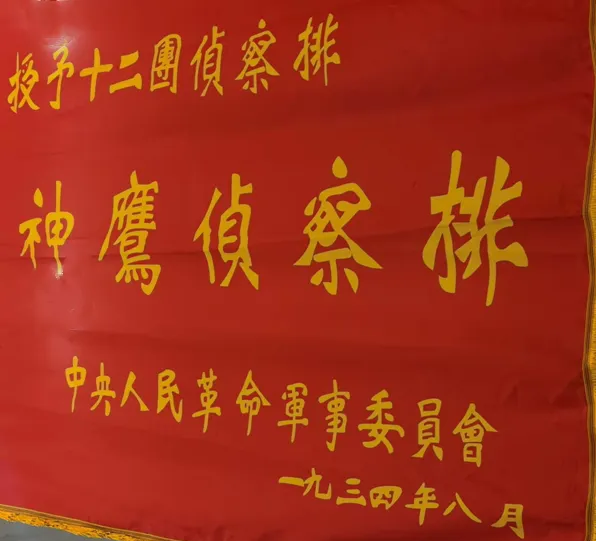 授予十二團偵察排
神鷹偵察排
中央人民革命軍事委員會
一九三四年八月